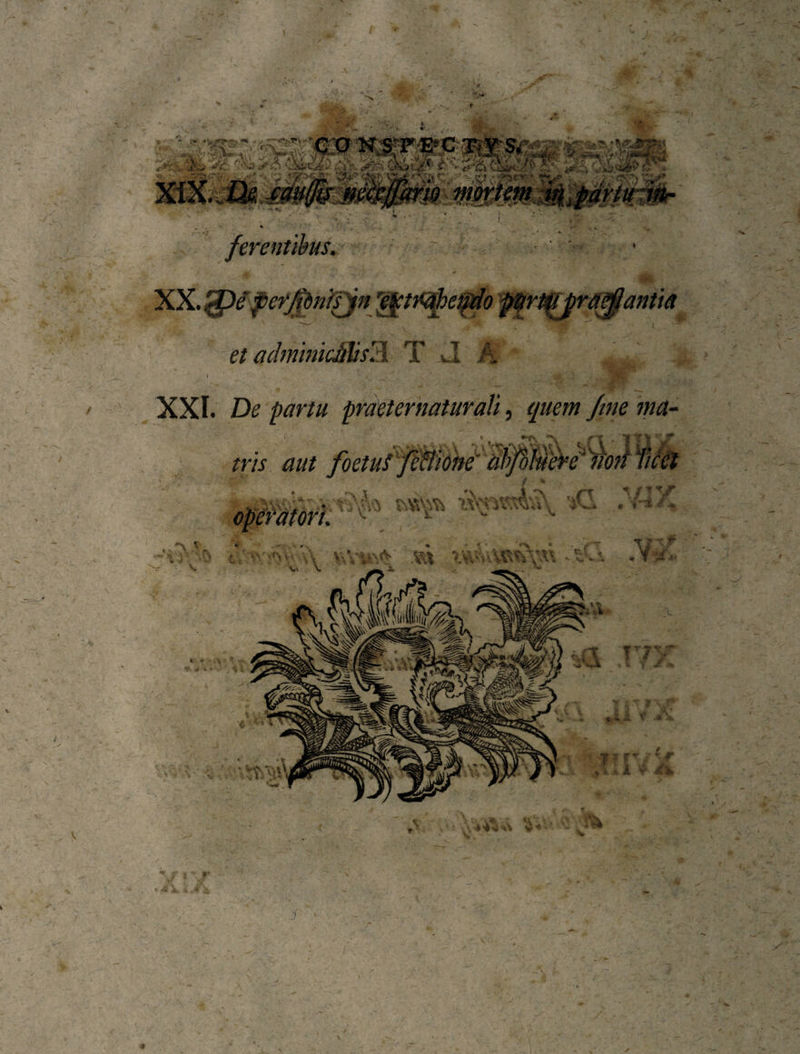 CONSPECTVS.
XIX. De caussis necessario mortem in partu in-
ferentibus.
XX. De personis in extrahendo partu praestantia
et adminiculis.
XXI. De partu praeternaturali, quem sine ma-
tris aut foetus sectione absolvere non licet
operatori.